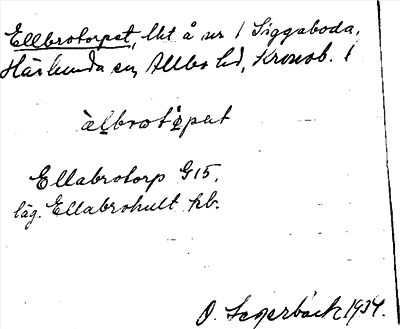 Ellbrotorpet, lht å nr 1 Siggaboda,
Härlunda sn, Allbo hd, Kronob. l
àlbrotårpat
Ellabrotorp G15.
läg. Ellabrohult kb.
O. Sagerbäck 1934.